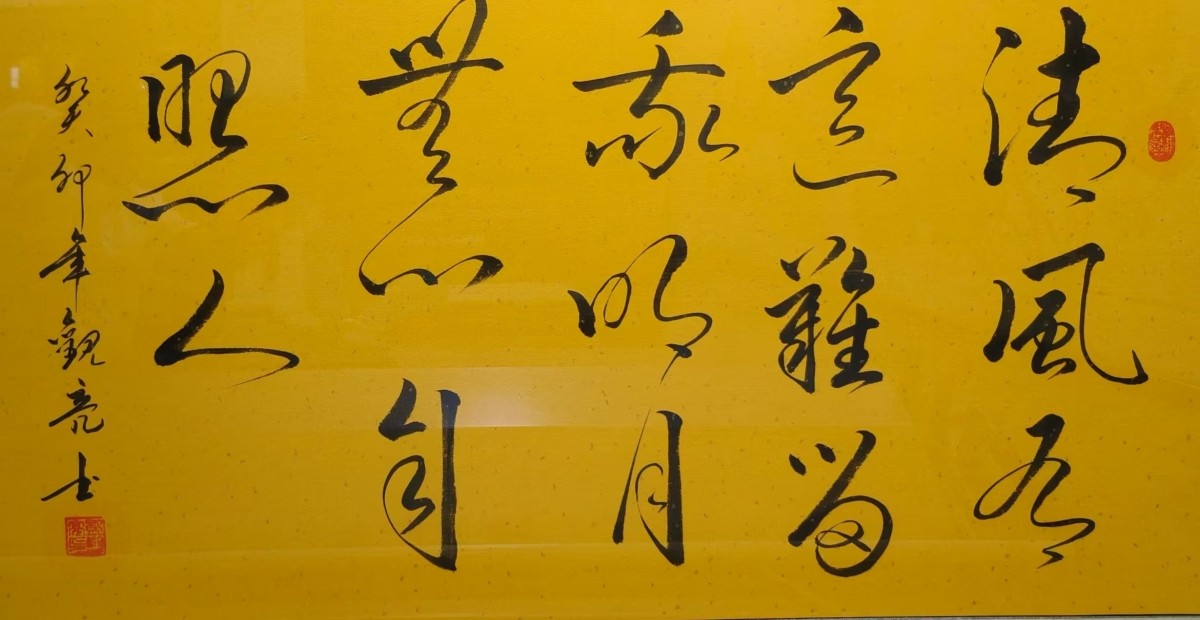 清風有
意難留
我明月
無心自
照人
癸卯年觀亮书